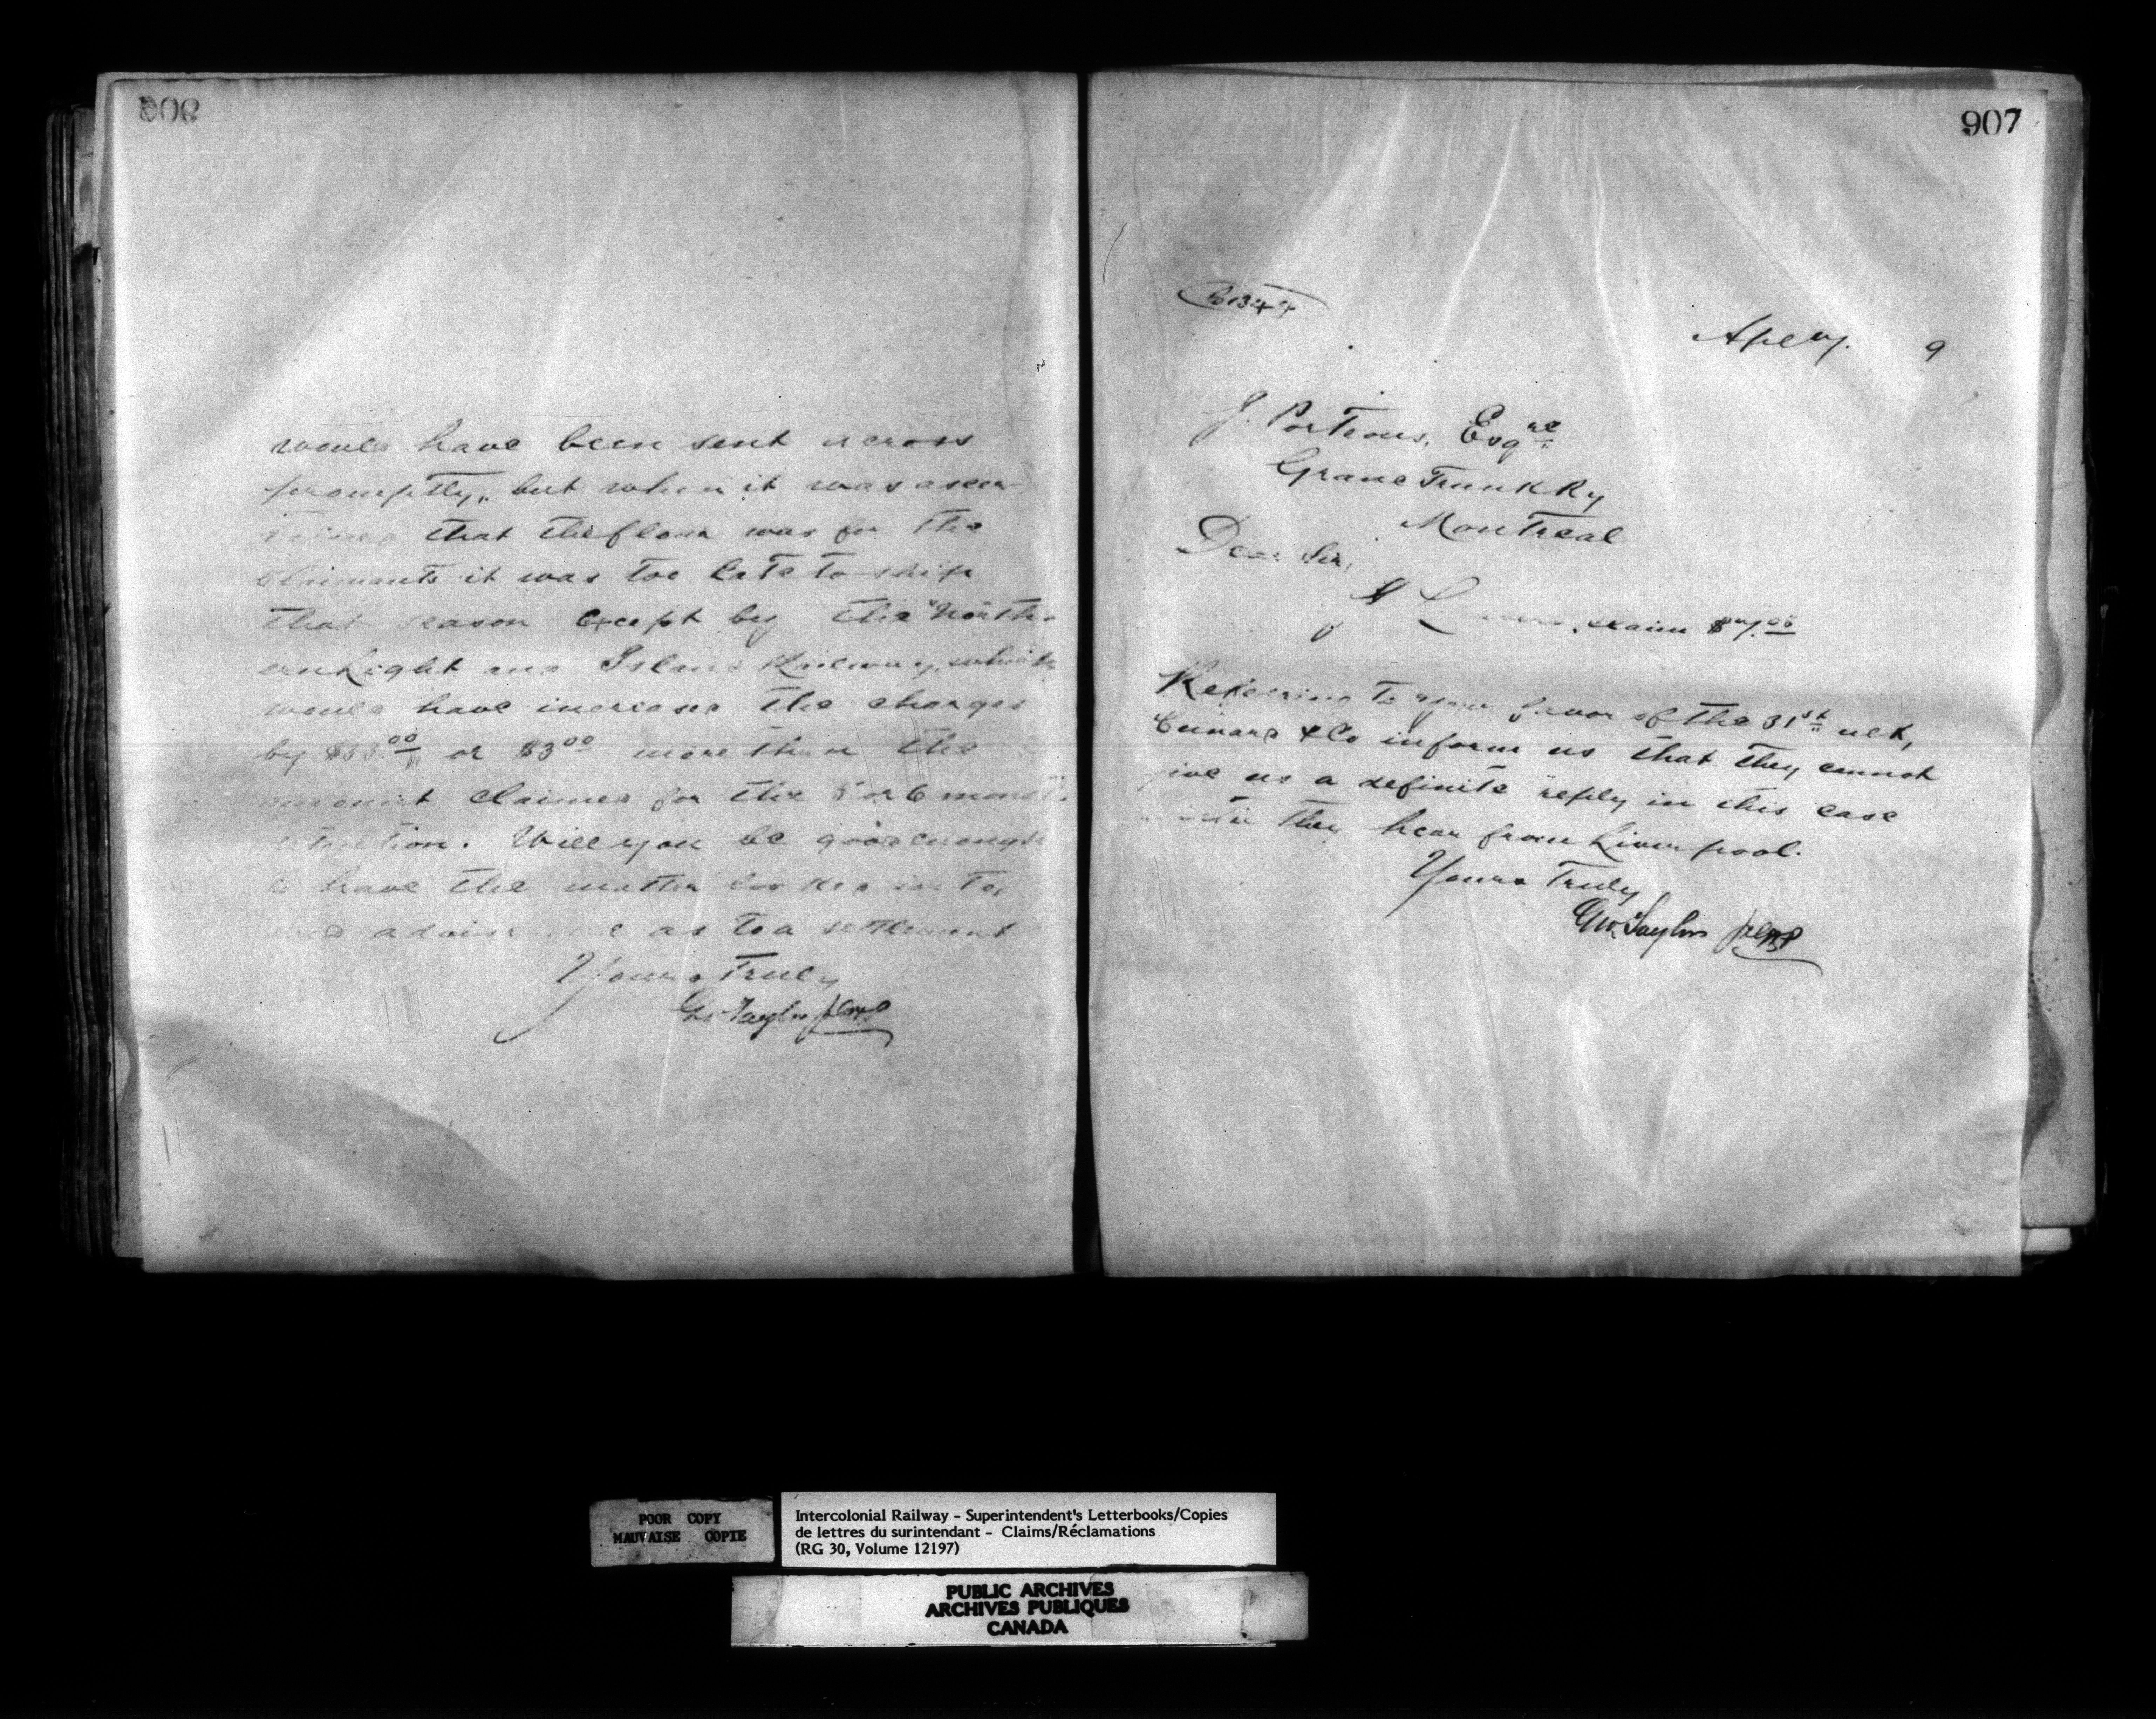 906
would have been sent across
promptly, but when it was ascer-
that the flour was for the
Claimants it was too late to ship
that season except by the "North-
ern Light and Island Railway, which
would have increased the charges
by $33.00 or $3.00 more than the
amount claimed for the 5 or 6 months
detention. Will you be good enough
to have the matter looked into,
and advise me as to a settlement
Yours Truly
Geo. Taylor
907
Apl 9
J. Porteous, Esqre
Grand Trunk Ry
Montreal
Dear Sir,
claim
Referring to your favor of the 31st ult,
Cunard & Co inform us that they cannot
give us a definite reply in this case
until they hear from Liverpool.
Yours Truly
Geo. Taylor
POOR COPY
MAUVAISE COPIE
Intercolonial Railway - Superintendent's Letterbooks/Copies
de lettres du surintendant - Claims/Réclamations
(RG 30, Volume 12197)
PUBLIC ARCHIVES
ARCHIVES PUBLIQUES
CANADA